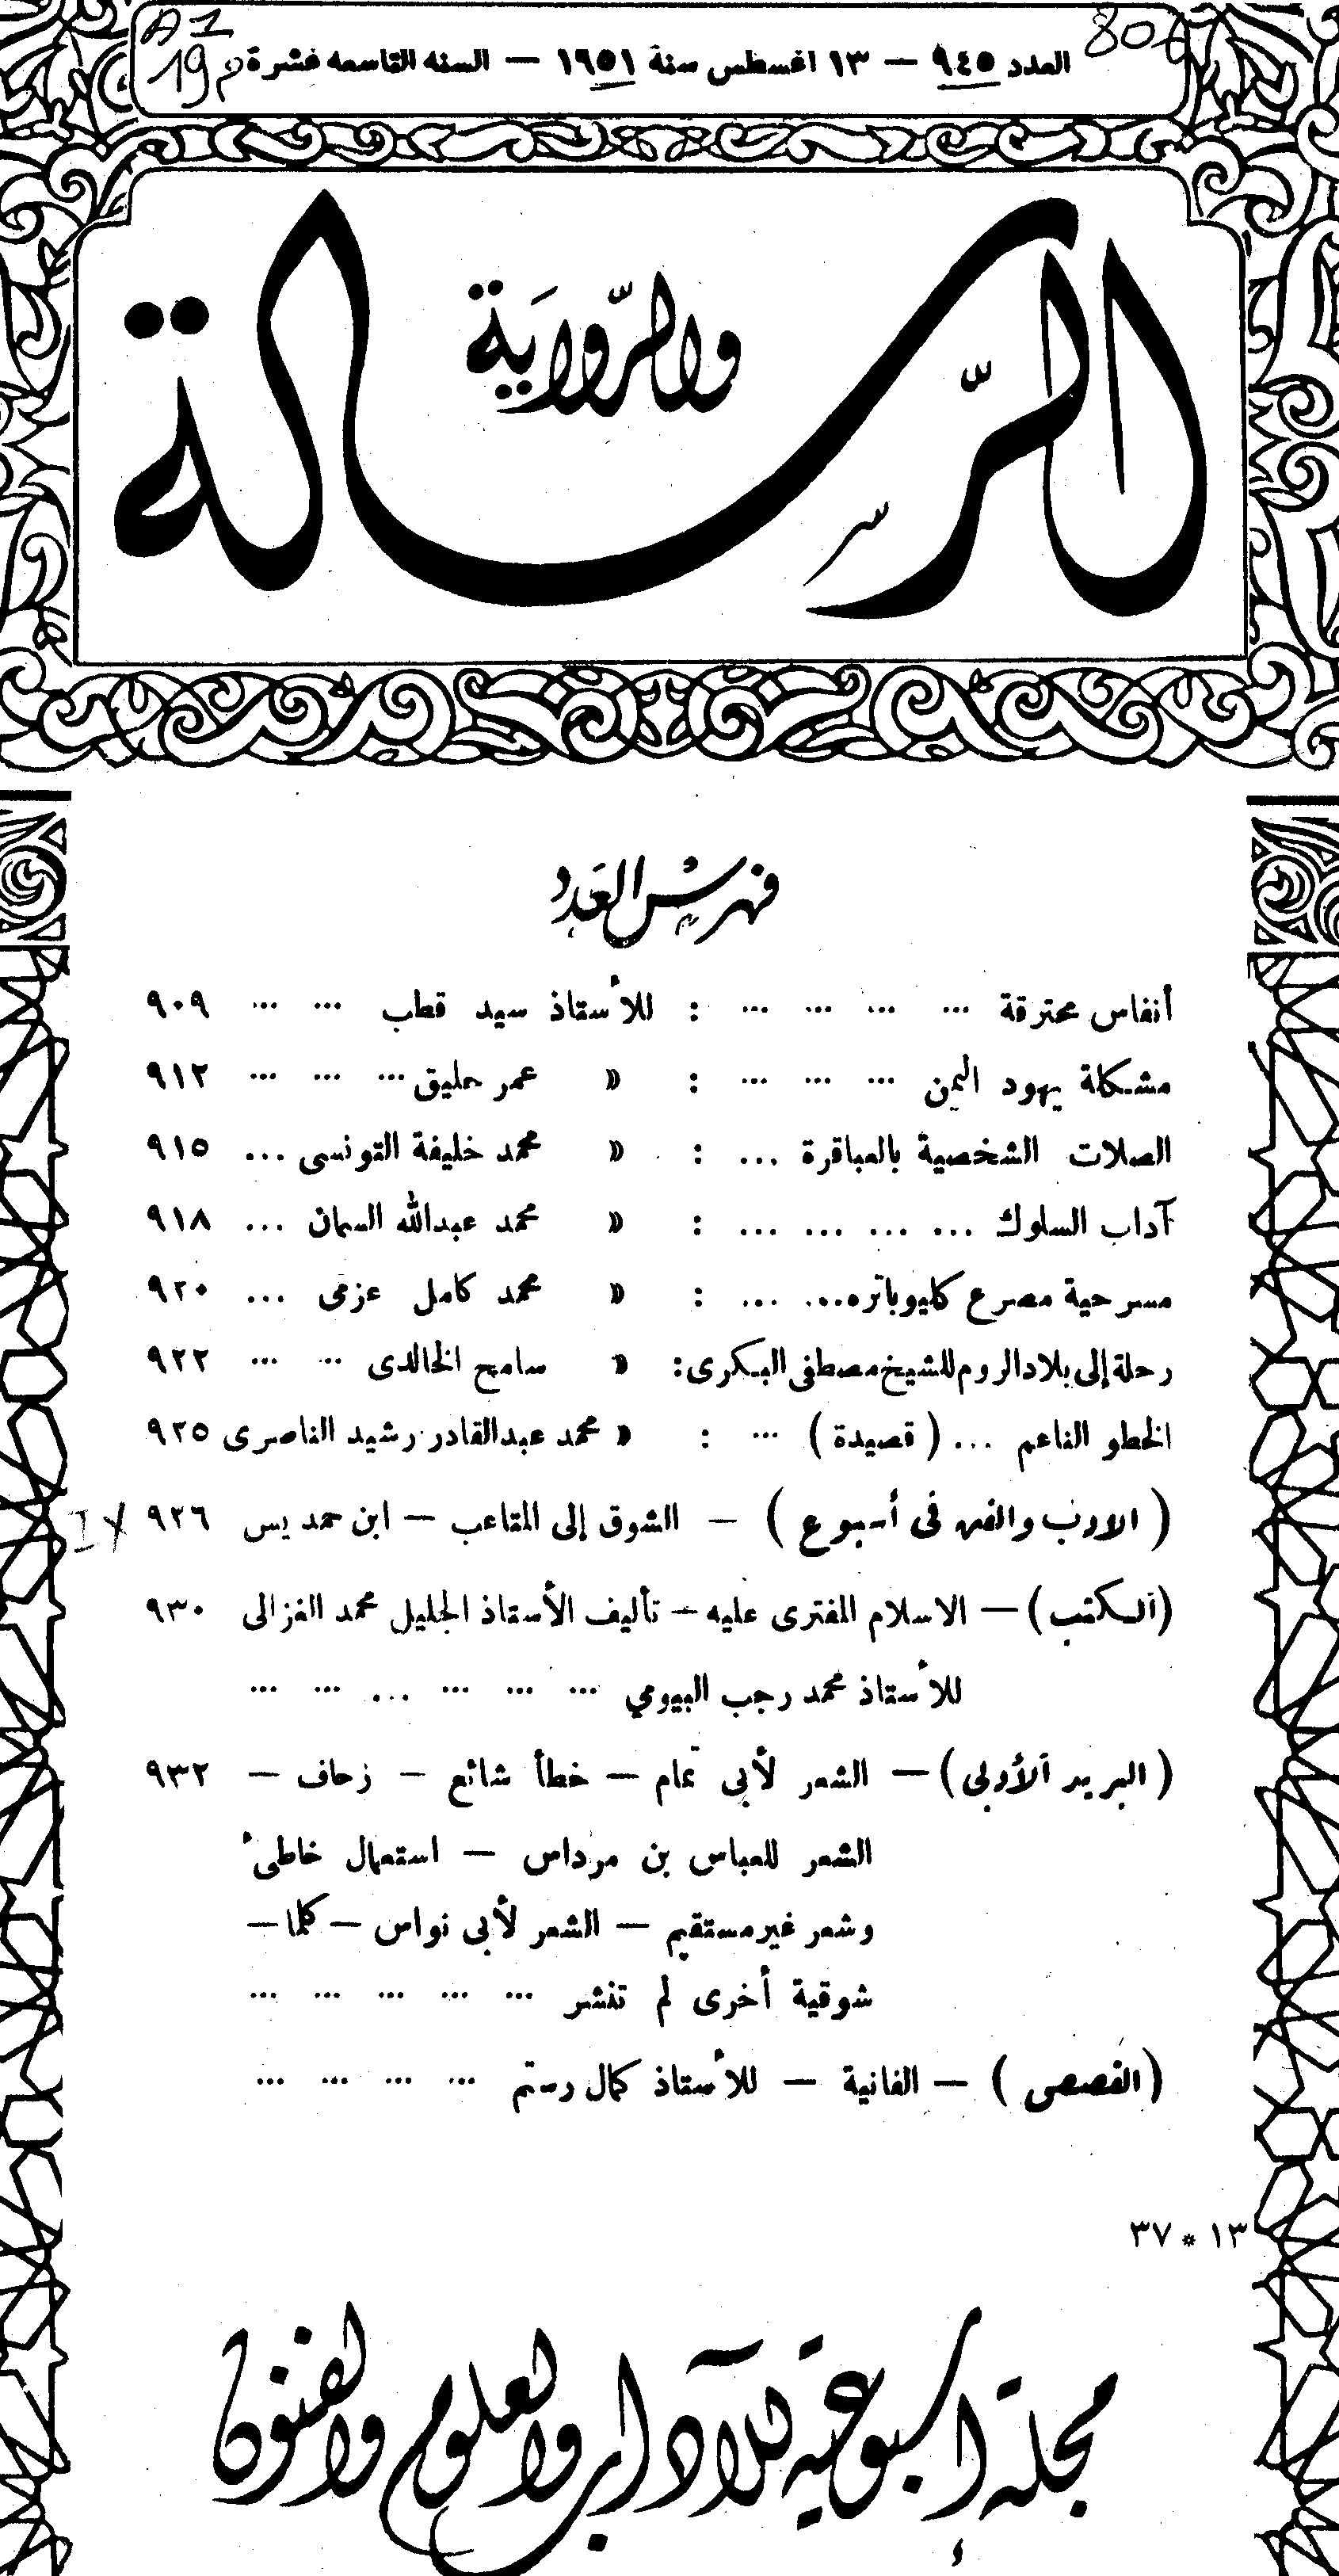 العدد ٩٤٥ — ١٣ اغسطس سنة ١٩٥١ — السنه التاسعه عشرة
الرسالة
والرواية
فهرس العدد
أنفاس محترقة ... ... ... ... : للأستاذ سيد قطب ... ... ٩٠٩
مشكلة يهود اليمن ... ... ... : » عمر حليق ... ... ... ٩١٢
الصلات الشخصية بالعباقرة ... : » محمد خليفة التونسى ... ٩١٥
آداب السلوك ... ... ... ... : » محمد عبدالله السمان ... ٩١٨
مسرحية مصرع كليوباتره... ... : » محمد كامل عزمى ... ٩٢٠
رحلة إلى بلاد الروم للشيخ مصطفى البكرى : » سامح الخالدى ... ... ٩٢٢
الخطو الناعم ... ( قصيدة ) ... : » محمد عبدالقادر رشيد الناصرى ٩٢٥
( الادب والفن فى أسبوع ) — الشوق إلى المتاعب — ابن حمد يس ٩٢٦
(الكتب) — الاسلام المفترى عليه — تأليف الأستاذ الجليل محمد الغزالى ٩٣٠
للأستاذ محمد رجب البيومي ... ... ... ... ... ...
( البريد الأدبى ) — الشعر لأبى تمام — خطأ شائع — زحاف — ٩٣٢
الشعر للعباس بن مرداس — استعمال خاطىء
وشعر غير مستقيم — الشعر لأبى نواس — كلما —
شوقية أخرى لم تنشر ... ... ... ... ...
(القصصى ) — الفانية — للأستاذ كمال رستم ... ... ... ...
١٣ * ٣٧
مجلة أسبوعية للآداب والعلوم والفنون